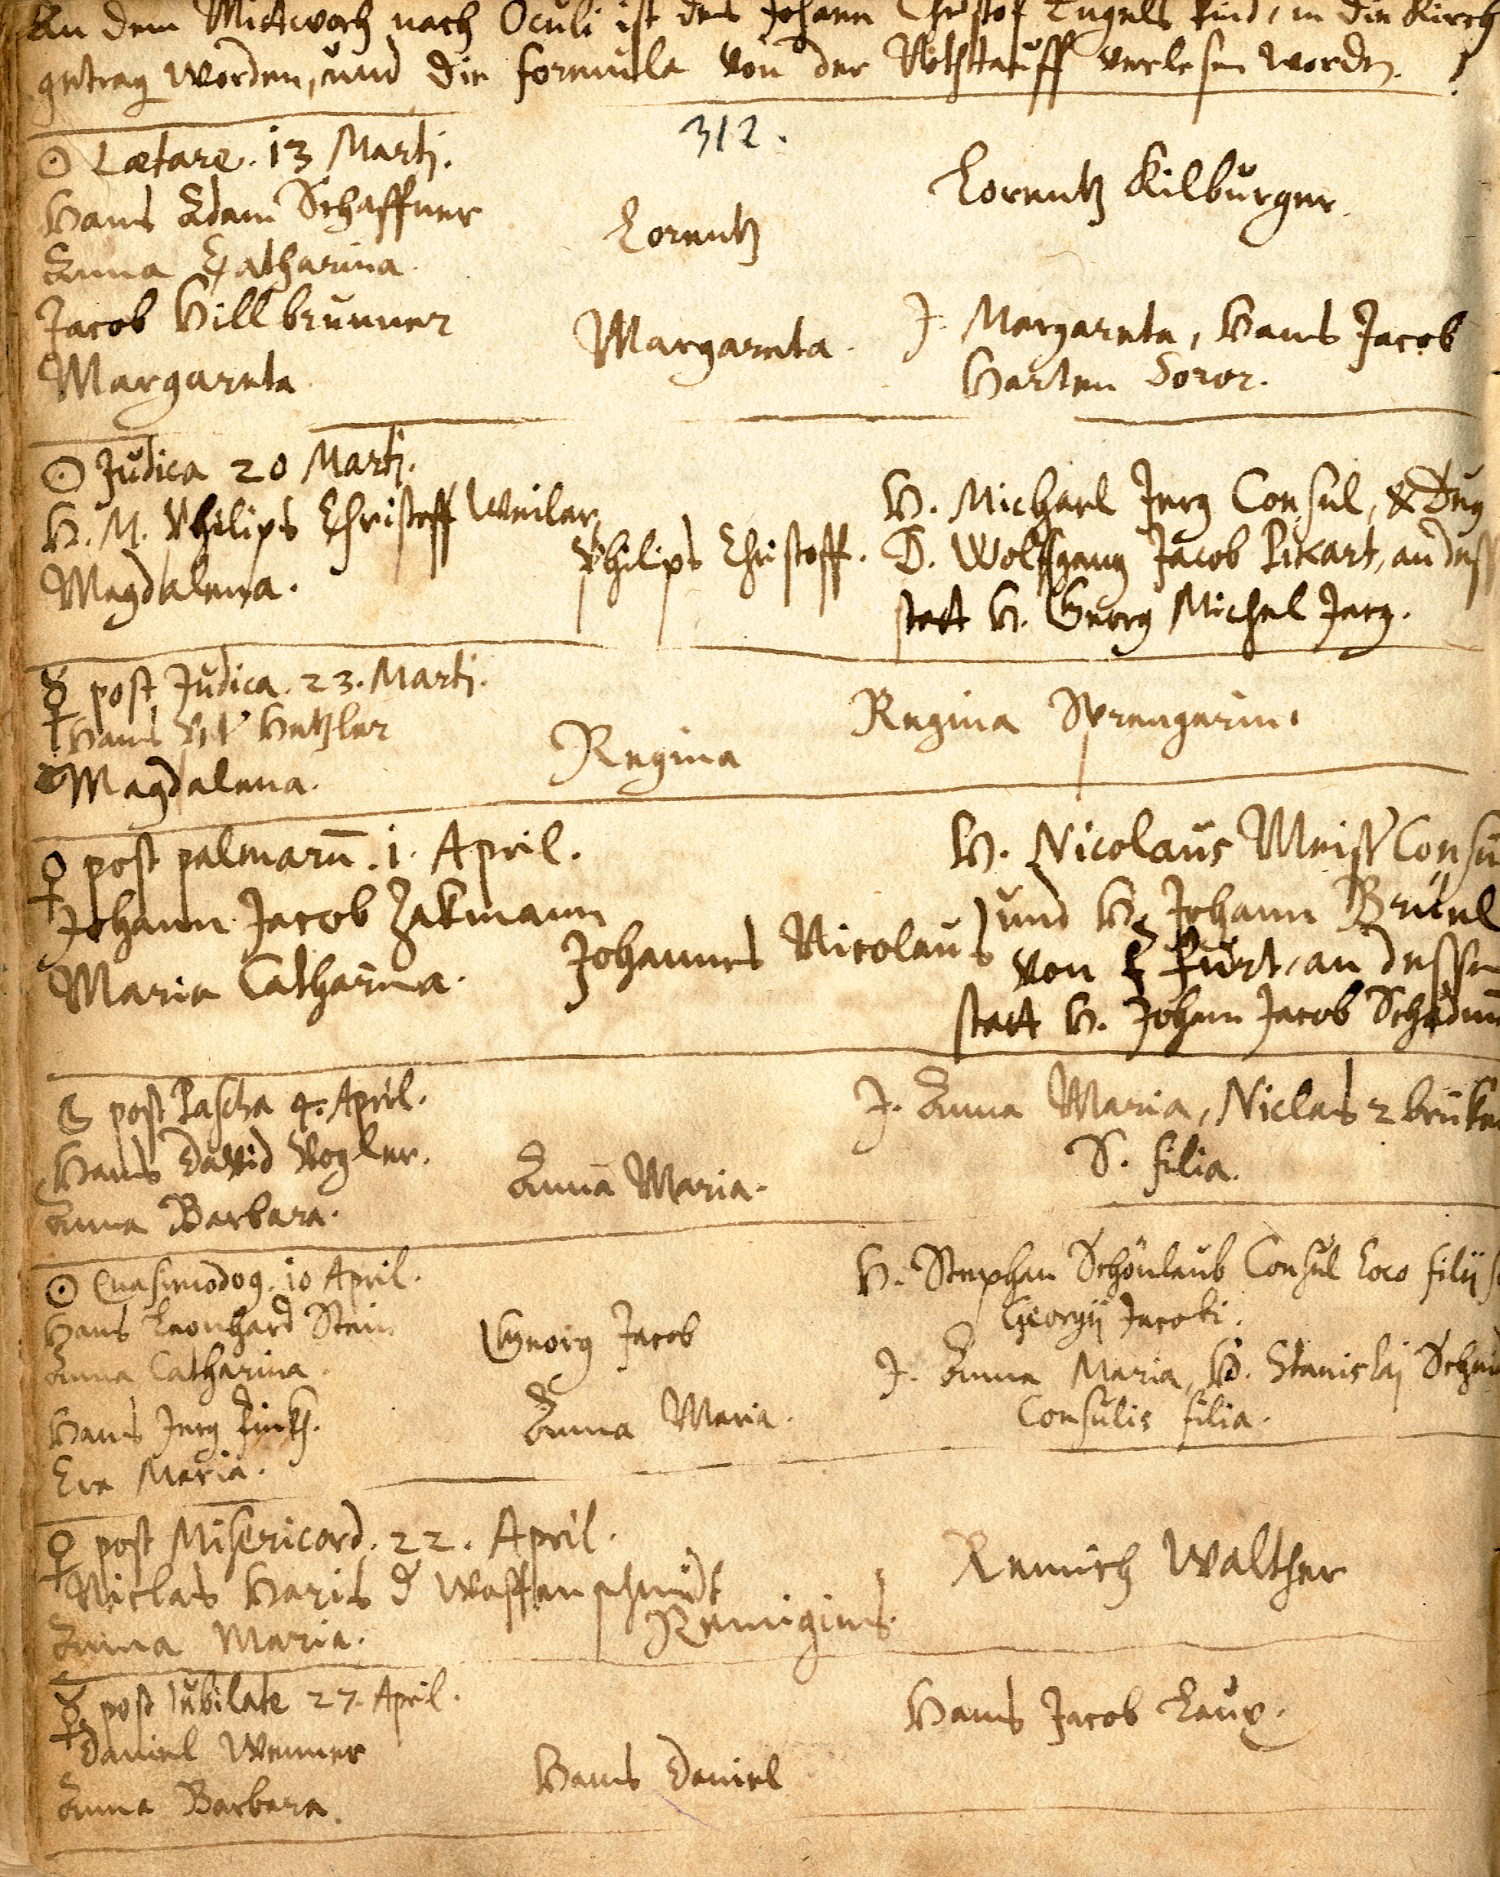 An dem Mittwoch nach Oculi ist des Johann Christof Engels Kind, in die Kirch
getrag worden, und die formula von der Nothtauff verlesen worden.
312.
☉ Lætare. 13 Martj.
Hans Adam Schaffner
Anna Catharina
Lorentz
Lorentz Kilburger.
Jacob Hillbrunner
Margareta
Margareta.
J. Margareta, Hans Jacob
Harten Soror.
☉ Judica 20 Martj.
H. M. Philips Christoff Weiler
Magdalena.
Philips Christoff.
H. Michael Jerg Consul, &
D. Wolfgang Jacob Pikart, an dess
statt H. Georg Michel Jerg.
☿ post Judica. 23. Martj.
Hans Vit Hetzler
Magdalena.
Regina
Regina Sprengerin.
♀ post palmarū. 1. April.
Johann Jacob Zakmann
Maria Catharina.
Johannes Nicolaus
H. Nicolaus Consu
und H. Johann
von furt, an dessen
statt H. Johann Jacob
post Pascha 4. April.
Hans David Vogler.
Anna Barbara.
Anna Maria.
J. Anna Maria, Niclas 2brüke
S. filia.
☉ Quasimodog. 10 April.
Hans Leonhard Stein
Anna Catharina.
Georg Jacob
H. Stephan Schönlaub Consul loco filij
Georgij Jacobi.
Hans Jerg
Eva Maria.
Anna Maria.
J. Anna Maria, H. Stanislaj
Consulis filia.
♀ post Misericord. 22. April.
Niclas Haris d Waffenschmidt
Anna Maria.
Remigius.
Remich Walther
☿ post Jubilate 27. April.
Daniel Wenner
Anna Barbara.
Hans Daniel
Hans Jacob Laux.